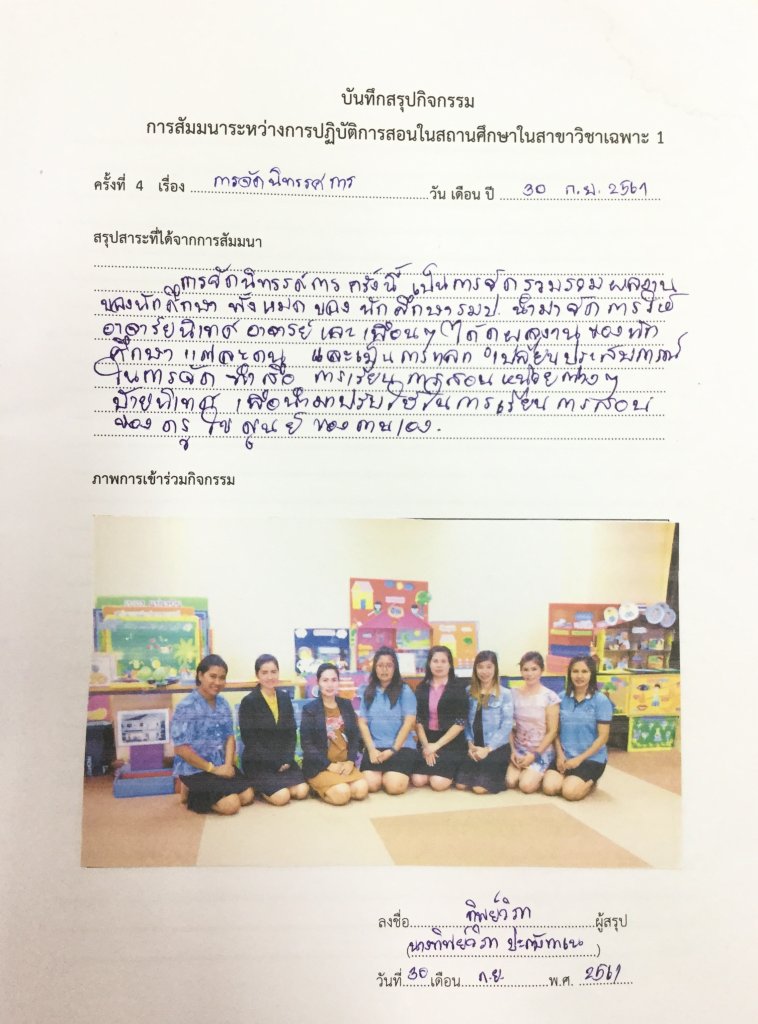 บันทึกสรุปกิจกรรม
การสัมมนาระหว่างการปฏิบัติการสอนในสถานศึกษาในสาขาวิชาเฉพาะ 1
ครั้งที่ 4 เรื่อง การจัดนิทรรศการ วัน เดือน ปี 30 ก.ย. 2561
สรุปสาระที่ได้จากการสัมมนา
การจัดนิทรรศการ ครั้งนี้ เป็นการจัดรวบรวมผลงาน
ของนักศึกษา ทั้งหมด ของ นักศึกษา รมป. นำมาจัดการให้
อาจารย์นิเทศ อาจารย์ และ เพื่อนๆ ได้ดูผลงาน ของนัก
ศึกษา แต่ละคน และเป็นการแลกเปลี่ยนประสบการณ์
ในการจัด ทำสื่อ การเรียน การสอน หน่วยต่างๆ
ป้ายนิเทศ เพื่อนำมาปรับใช้ในการเรียน การสอน
ของ ครู ใน ศูนย์ ของตนเอง.
ภาพการเข้าร่วมกิจกรรม
ลงชื่อ ทิพย์วิภา ผู้สรุป
(นางทิพย์วิภา)
วันที่ 30 เดือน ก.ย. พ.ศ. 2561